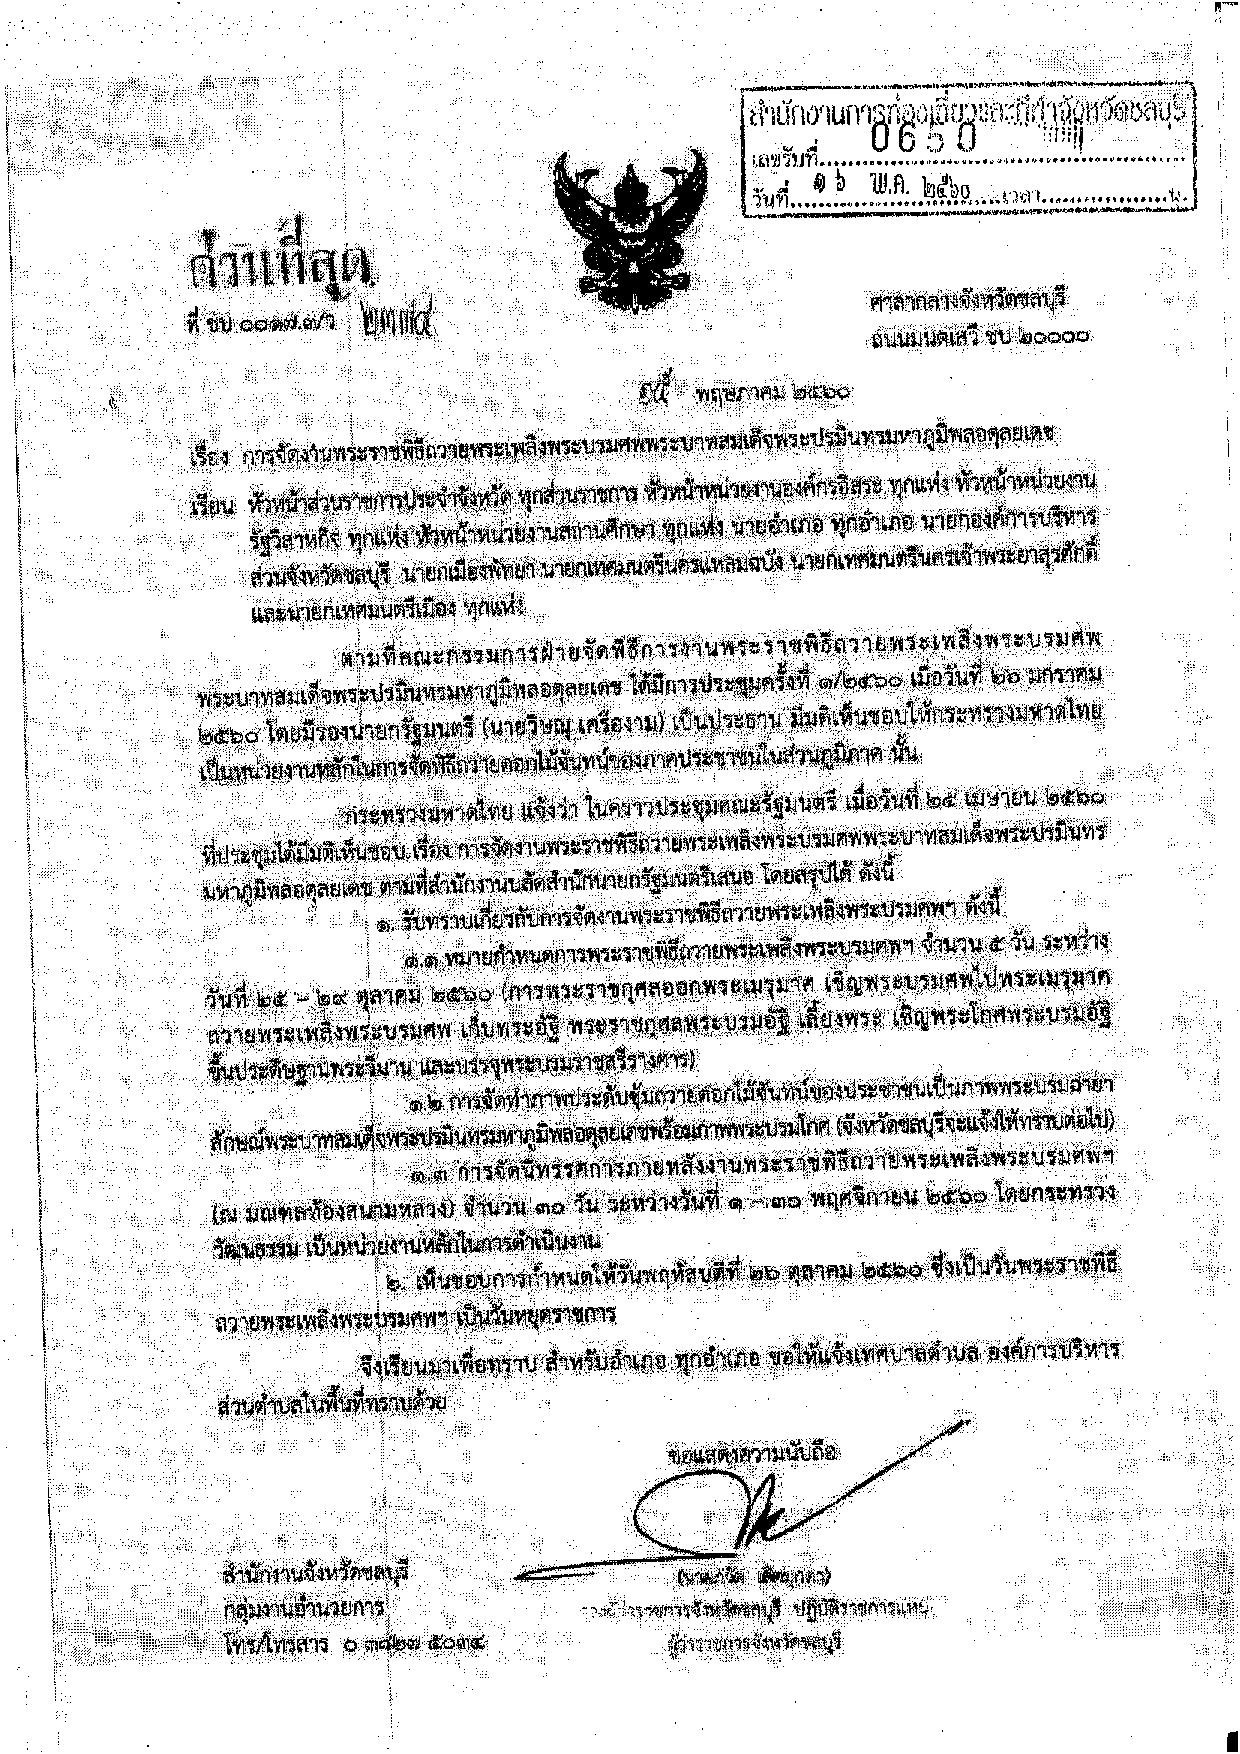 สำนักงานการท่องเที่ยวและกีฬาจังหวัดชลบุรี
เลขรับที่ 0650
วันที่ ๑๖ พ.ค. ๒๕๖๐ เวลา น.
ด่วนที่สุด
ที่ ชบ ๐๐๑๗.๓/ว ๒๓๓๔
ศาลากลางจังหวัดชลบุรี
ถนนมนตเสวี ชบ ๒๐๐๐๐
๑๕ พฤษภาคม ๒๕๖๐
เรื่อง การจัดงานพระราชพิธีถวายพระเพลิงพระบรมศพพระบาทสมเด็จพระปรมินทรมหาภูมิพลอดุลยเดช
เรียน หัวหน้าส่วนราชการประจำจังหวัด ทุกส่วนราชการ หัวหน้าหน่วยงานองค์กรอิสระ ทุกแห่ง หัวหน้าหน่วยงาน
รัฐวิสาหกิจ ทุกแห่ง หัวหน้าหน่วยงานสถานศึกษา ทุกแห่ง นายอำเภอ ทุกอำเภอ นายกองค์การบริหาร
ส่วนจังหวัดชลบุรี นายกเมืองพัทยา นายกเทศมนตรีนครแหลมฉบัง นายกเทศมนตรีนครเจ้าพระยาสุรศักดิ์
และนายกเทศมนตรีเมือง ทุกแห่ง
ตามที่คณะกรรมการฝ่ายจัดพิธีการงานพระราชพิธีถวายพระเพลิงพระบรมศพ
พระบาทสมเด็จพระปรมินทรมหาภูมิพลอดุลยเดช ได้มีการประชุมครั้งที่ ๑/๒๕๖๐ เมื่อวันที่ ๒๖ มกราคม
๒๕๖๐ โดยมีรองนายกรัฐมนตรี (นายวิษณุ เครืองาม) เป็นประธาน มีมติเห็นชอบให้กระทรวงมหาดไทย
เป็นหน่วยงานหลักในการจัดพิธีถวายดอกไม้จันทน์ของภาคประชาชนในส่วนภูมิภาค นั้น
กระทรวงมหาดไทย แจ้งว่า ในคราวประชุมคณะรัฐมนตรี เมื่อวันที่ ๒๕ เมษายน ๒๕๖๐
ที่ประชุมได้มีมติเห็นชอบ เรื่อง การจัดงานพระราชพิธีถวายพระเพลิงพระบรมศพพระบาทสมเด็จพระปรมินทร
มหาภูมิพลอดุลยเดช ตามที่สำนักงานปลัดสำนักนายกรัฐมนตรีเสนอ โดยสรุปได้ ดังนี้
๑. รับทราบเกี่ยวกับการจัดงานพระราชพิธีถวายพระเพลิงพระบรมศพฯ ดังนี้
๑.๑ หมายกำหนดการพระราชพิธีถวายพระเพลิงพระบรมศพฯ จำนวน ๕ วัน ระหว่าง
วันที่ ๒๕ – ๒๙ ตุลาคม ๒๕๖๐ (การพระราชกุศลออกพระเมรุมาศ เชิญพระบรมศพไปพระเมรุมาศ
ถวายพระเพลิงพระบรมศพ เก็บพระอัฐิ พระราชกุศลพระบรมอัฐิ เลี้ยงพระ เชิญพระโกศพระบรมอัฐิ
ขึ้นประดิษฐานพระวิมาน และบรรจุพระบรมราชสรีรางคาร)
๑.๒ การจัดทำภาพประดับซุ้มถวายดอกไม้จันทน์ของประชาชนเป็นภาพพระบรมฉายา
ลักษณ์พระบาทสมเด็จพระปรมินทรมหาภูมิพลอดุลยเดชพร้อมภาพพระบรมโกศ (จังหวัดชลบุรีจะแจ้งให้ทราบต่อไป)
๑.๓ การจัดนิทรรศการภายหลังงานพระราชพิธีถวายพระเพลิงพระบรมศพฯ
(ณ มณฑลท้องสนามหลวง) จำนวน ๓๐ วัน ระหว่างวันที่ ๑ – ๓๐ พฤศจิกายน ๒๕๖๐ โดยกระทรวง
วัฒนธรรม เป็นหน่วยงานหลักในการดำเนินงาน
๒. เห็นชอบการกำหนดให้วันพฤหัสบดีที่ ๒๖ ตุลาคม ๒๕๖๐ ซึ่งเป็นวันพระราชพิธี
ถวายพระเพลิงพระบรมศพฯ เป็นวันหยุดราชการ
จึงเรียนมาเพื่อทราบ สำหรับอำเภอ ทุกอำเภอ ขอให้แจ้งเทศบาลตำบล องค์การบริหาร
ส่วนตำบลในพื้นที่ทราบด้วย
ขอแสดงความนับถือ
รองผู้ว่าราชการจังหวัดชลบุรี ปฏิบัติราชการแทน
ผู้ว่าราชการจังหวัดชลบุรี
สำนักงานจังหวัดชลบุรี
กลุ่มงานอำนวยการ
โทร/โทรสาร ๐ ๓๘๒๗ ๕๐๓๔